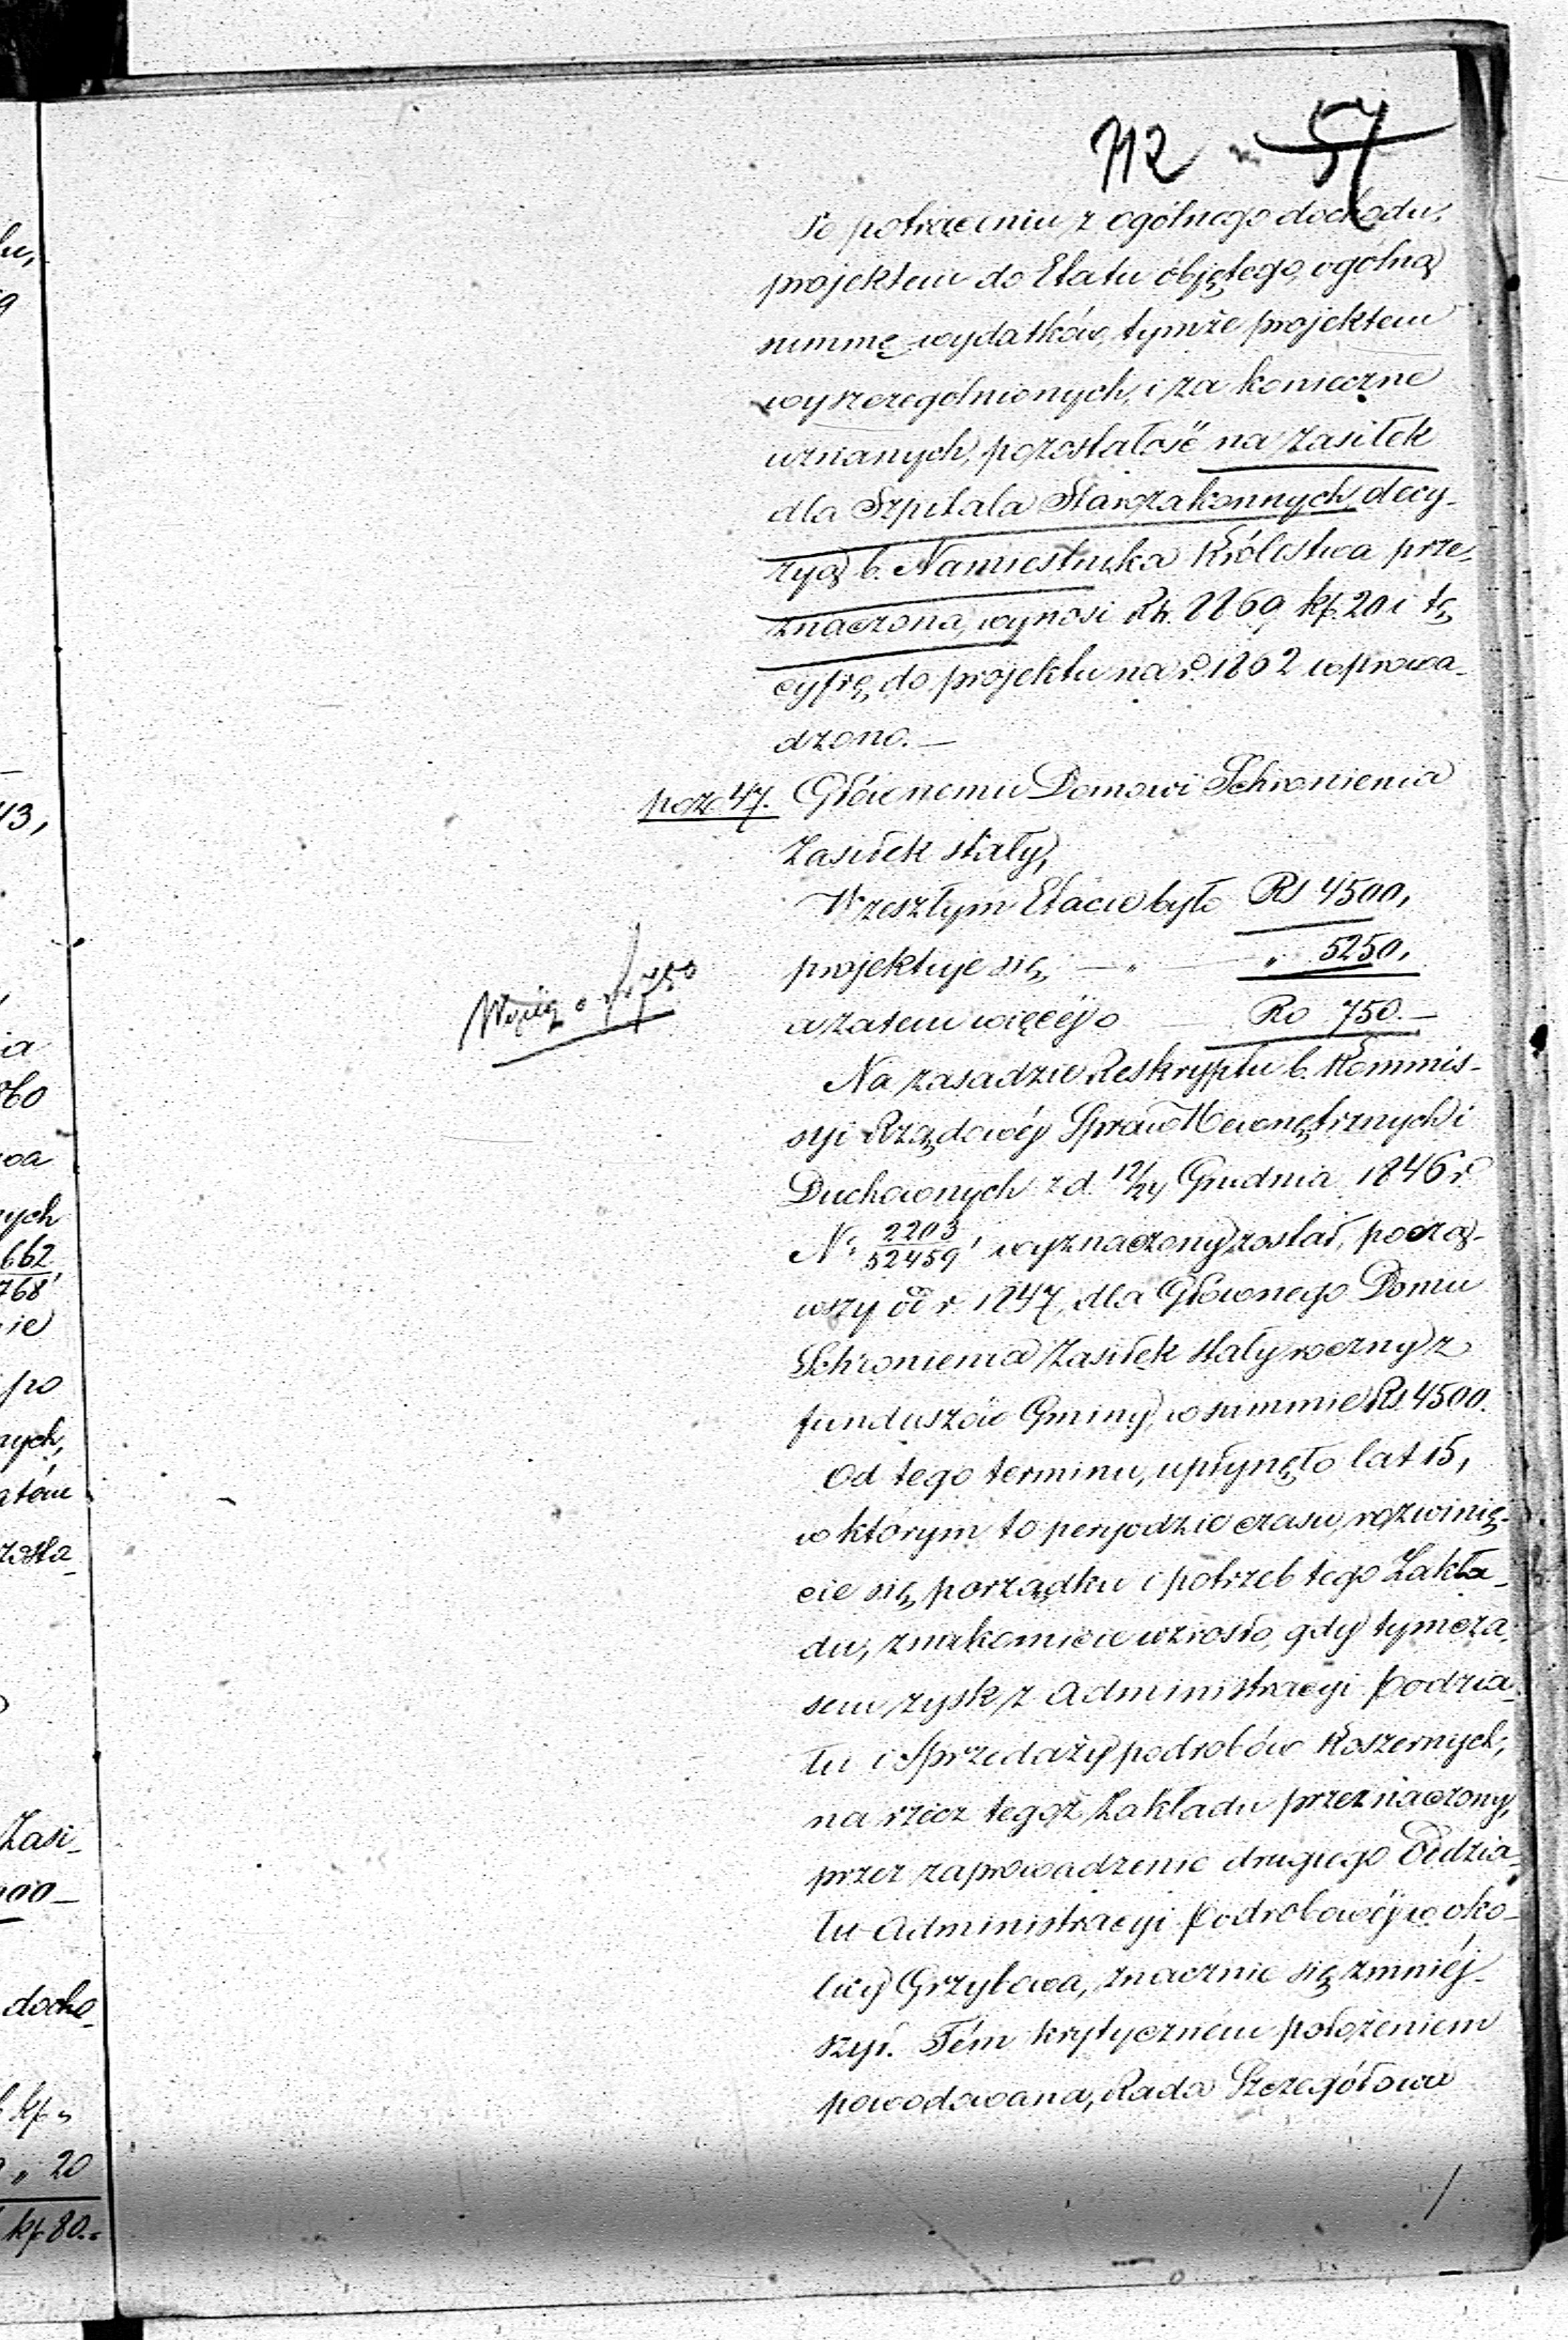 712 57
Po potrąceniu z ogólnego dochodu,
projektem do Etatu objętego, ogólną
summę wydatków, tymże projektem
wyszczególnionych, i za konieczne
uznanych, pozostałość na zasiłek
dla Szpitala Starozakonnych, decy-
zyą b. Namiestnika Królestwa prze-
znaczona, wynosi Rs. 8869 kp. 20 i tę
cyfrę, do projektu na r. 1862 wprowa-
dzono. —
poz. 47. Głównemu Domowi Schronienia
Zasiłek stały,
W zeszłym Etacie było Rs 4500,
projektuje się, — „ — „ 5250,
a zatem więcéj o — Rs 750. —
Więcéj o rs 750
Na zasadzie Reskryptu b. Kommis-
syi Rządowéj Spraw Wewnętrznych i
Duchownych z d. 12/24 Grudnia 1846 r.
N. 2203/52459, wyznaczony został, począ-
wszy od r. 1847, dla Głównego Domu
Schronienia Zasiłek stały roczny z
funduszów Gminy, w summie Rs. 4500.
Od tego terminu, upłynęło lat 15,
w którym to peryodzie czasu, rozwinię-
cie się, porządku i potrzeb tego Zakła-
du, znakomicie wzrosło, gdy tymcza-
sem zysk z Administracyi Podzia-
łu i Sprzedaży podrobów Koszernych,
na rzecz tegoż Zakładu przeznaczony,
przez zaprowadzenie drugiego Oddzia-
łu Administracyi Podrobowéj w oko-
licy Grzybowa, znacznie się zmniéj-
szył. Tém krytyczném położeniem
powodowana, Rada Szczegółowa
lu,
9
43,
ia
860
wa
nych
662
768
nie
po
nych,
atów
zosta-
Zasi-
000 —
docho-
kp „
„ 20
kp 80.